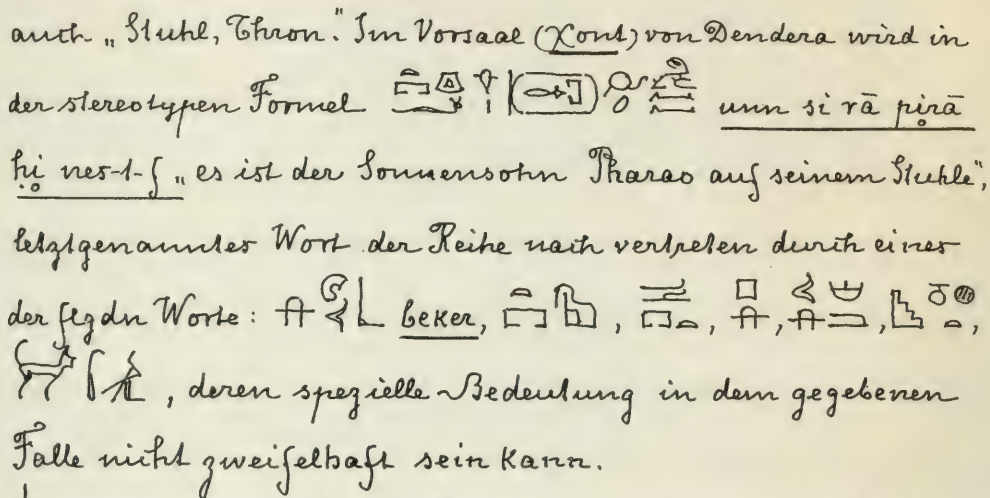 auch „Stuhl, Thron." Im Vorsaal (Χont) von Dendera wird in
der stereotypen Formel unn si rā pirā
ḥi nes-t-f „es ist der Sonnensohn Pharao auf seinem Stuhle",
letztgenanntes Wort der Reihe nach vertreten durch eines
der flgdn Worte: beker, , , , , ,
, deren spezielle Bedeutung in dem gegebenen
Falle nicht zweifelhaft sein kann.